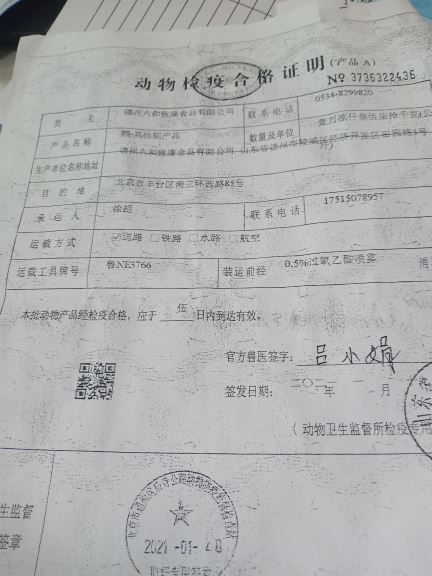 动物检疫合格证明(产品 A)
№ 3735322435
货 主 德州六和敬康食品有限公司 联系电话 0534-8299820
产品名称 鸭-其他副产品 数量及单位
生产单位名称地址 德州六和敬康食品有限公司 山东省德州市陵城区经济开发区
目的地 北京市丰台区南三环西路85号
承运人 徐超 联系电话 17515078957
运载方式 ☑道路 □铁路 □水路 □航空
运载工具牌号 鲁NE3766 装运前经 0.5%过氧乙酸喷雾 消
本批动物产品经检疫合格，应于 伍 日内到达有效。
官方兽医签字：吕小娟
签发日期： 年 月
(动物卫生监督所检疫专用
山东省
生监督
签章
2021-01-